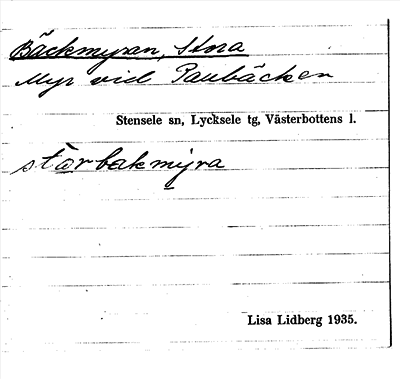 Bäckmyran, Stora
Myr vid Paubäcken
Stensele sn, Lycksele tg, Västerbottens l.
storbakmyra
Lisa Lidberg 1935.